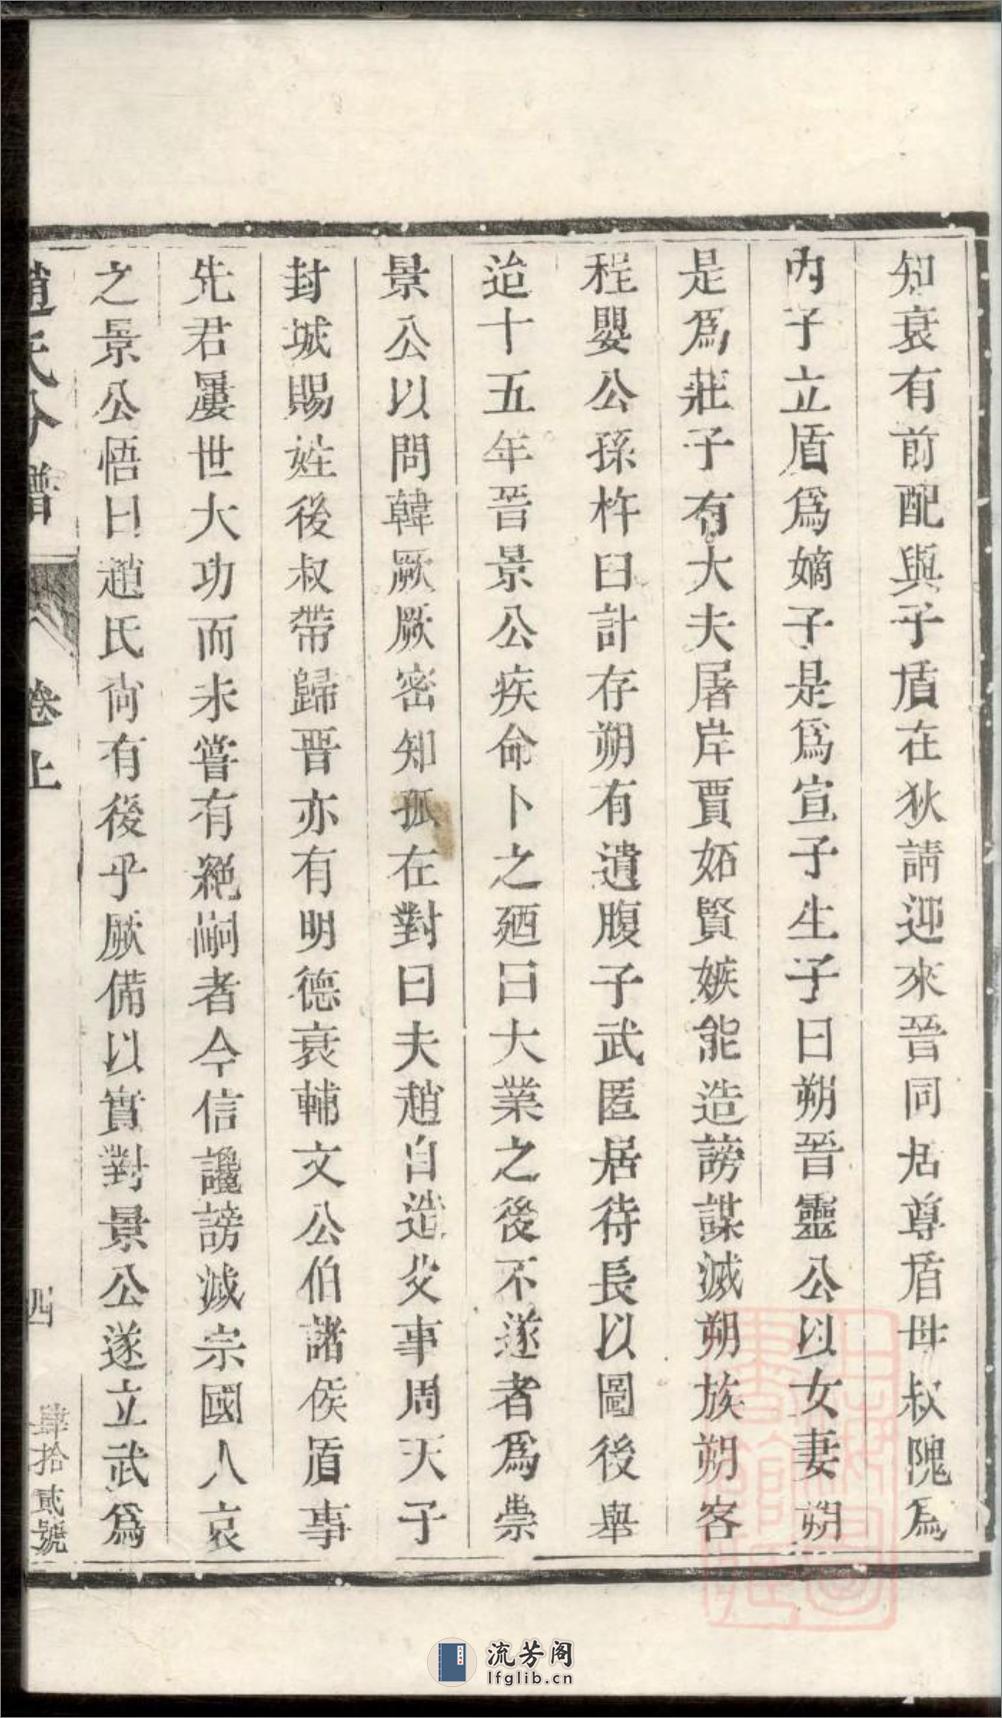 知衰有前配與子盾在狄請迎來晉同居尊盾母叔隗為
內子立盾為嫡子是為宣子生子曰朔晉靈公以女妻朔
是為莊子有大夫屠岸賈妬賢嫉能造謗謀滅朔族朔客
程嬰公孫杵臼計存朔有遺腹子武匿居待長以圖後舉
迨十五年晉景公疾命卜之廼曰大業之後不遂者為祟
景公以問韓厥厥密知孤在對曰夫趙自造父事周天子
封城賜姓後叔帶歸晉亦有明德衰輔文公伯諸侯盾事
先君屢世大功而未嘗有絕嗣者今信讒謗滅宗國人哀
之景公悟曰趙氏尙有後乎厥備以實對景公遂立武為
趙氏分譜 卷上 四 肆拾貳號
流芳阁
lfglib.cn